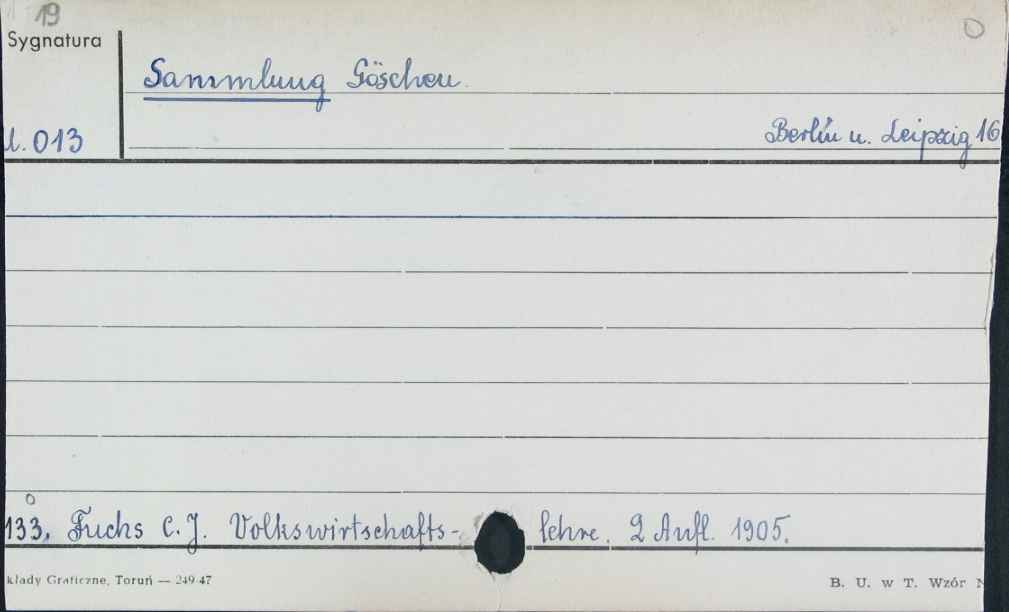 19
Sygnatura
Sammlung Göschen.
l. 013
Berlin u. Leipzig 16
133. Fuchs C. J. Volkswirtschafts- lehre. 2 Aufl. 1905.
kłady Graficzne, Toruń — 249-47
B. U. w T. Wzór N